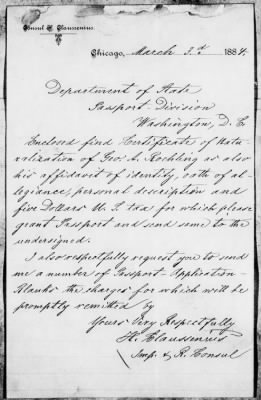 Consul H. Claussenius.
Chicago, March 3.d 1884.
Department of State
Passport Division
Washington, D. C
Enclosed find Certificate of Natu-
ralization of Geo. A. Rochling as also
his affidavit of identity, oath of al-
legiance, personal description and
five Dollars U. S. tax for which please
grant Passport and send same to the
undersigned.
I also respectfully request you to send
me a number of Passport Application-
blanks the charges for which will be
promptly remitted by
Yours Very Respectfully
H. Claussenius
Imp. G. R. Consul